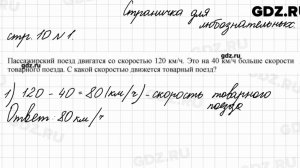 Страничка для
любознательных
стр. 10 № 1.
Пассажирский поезд двигается со скоростью 120 км/ч. Это на 40 км/ч больше скорости
товарного поезда. С какой скоростью движется товарный поезд?
1) 120 - 40 = 80 (км/ч) - скорость товарного
поезда
Ответ: 80 км/ч
GDZ.RU